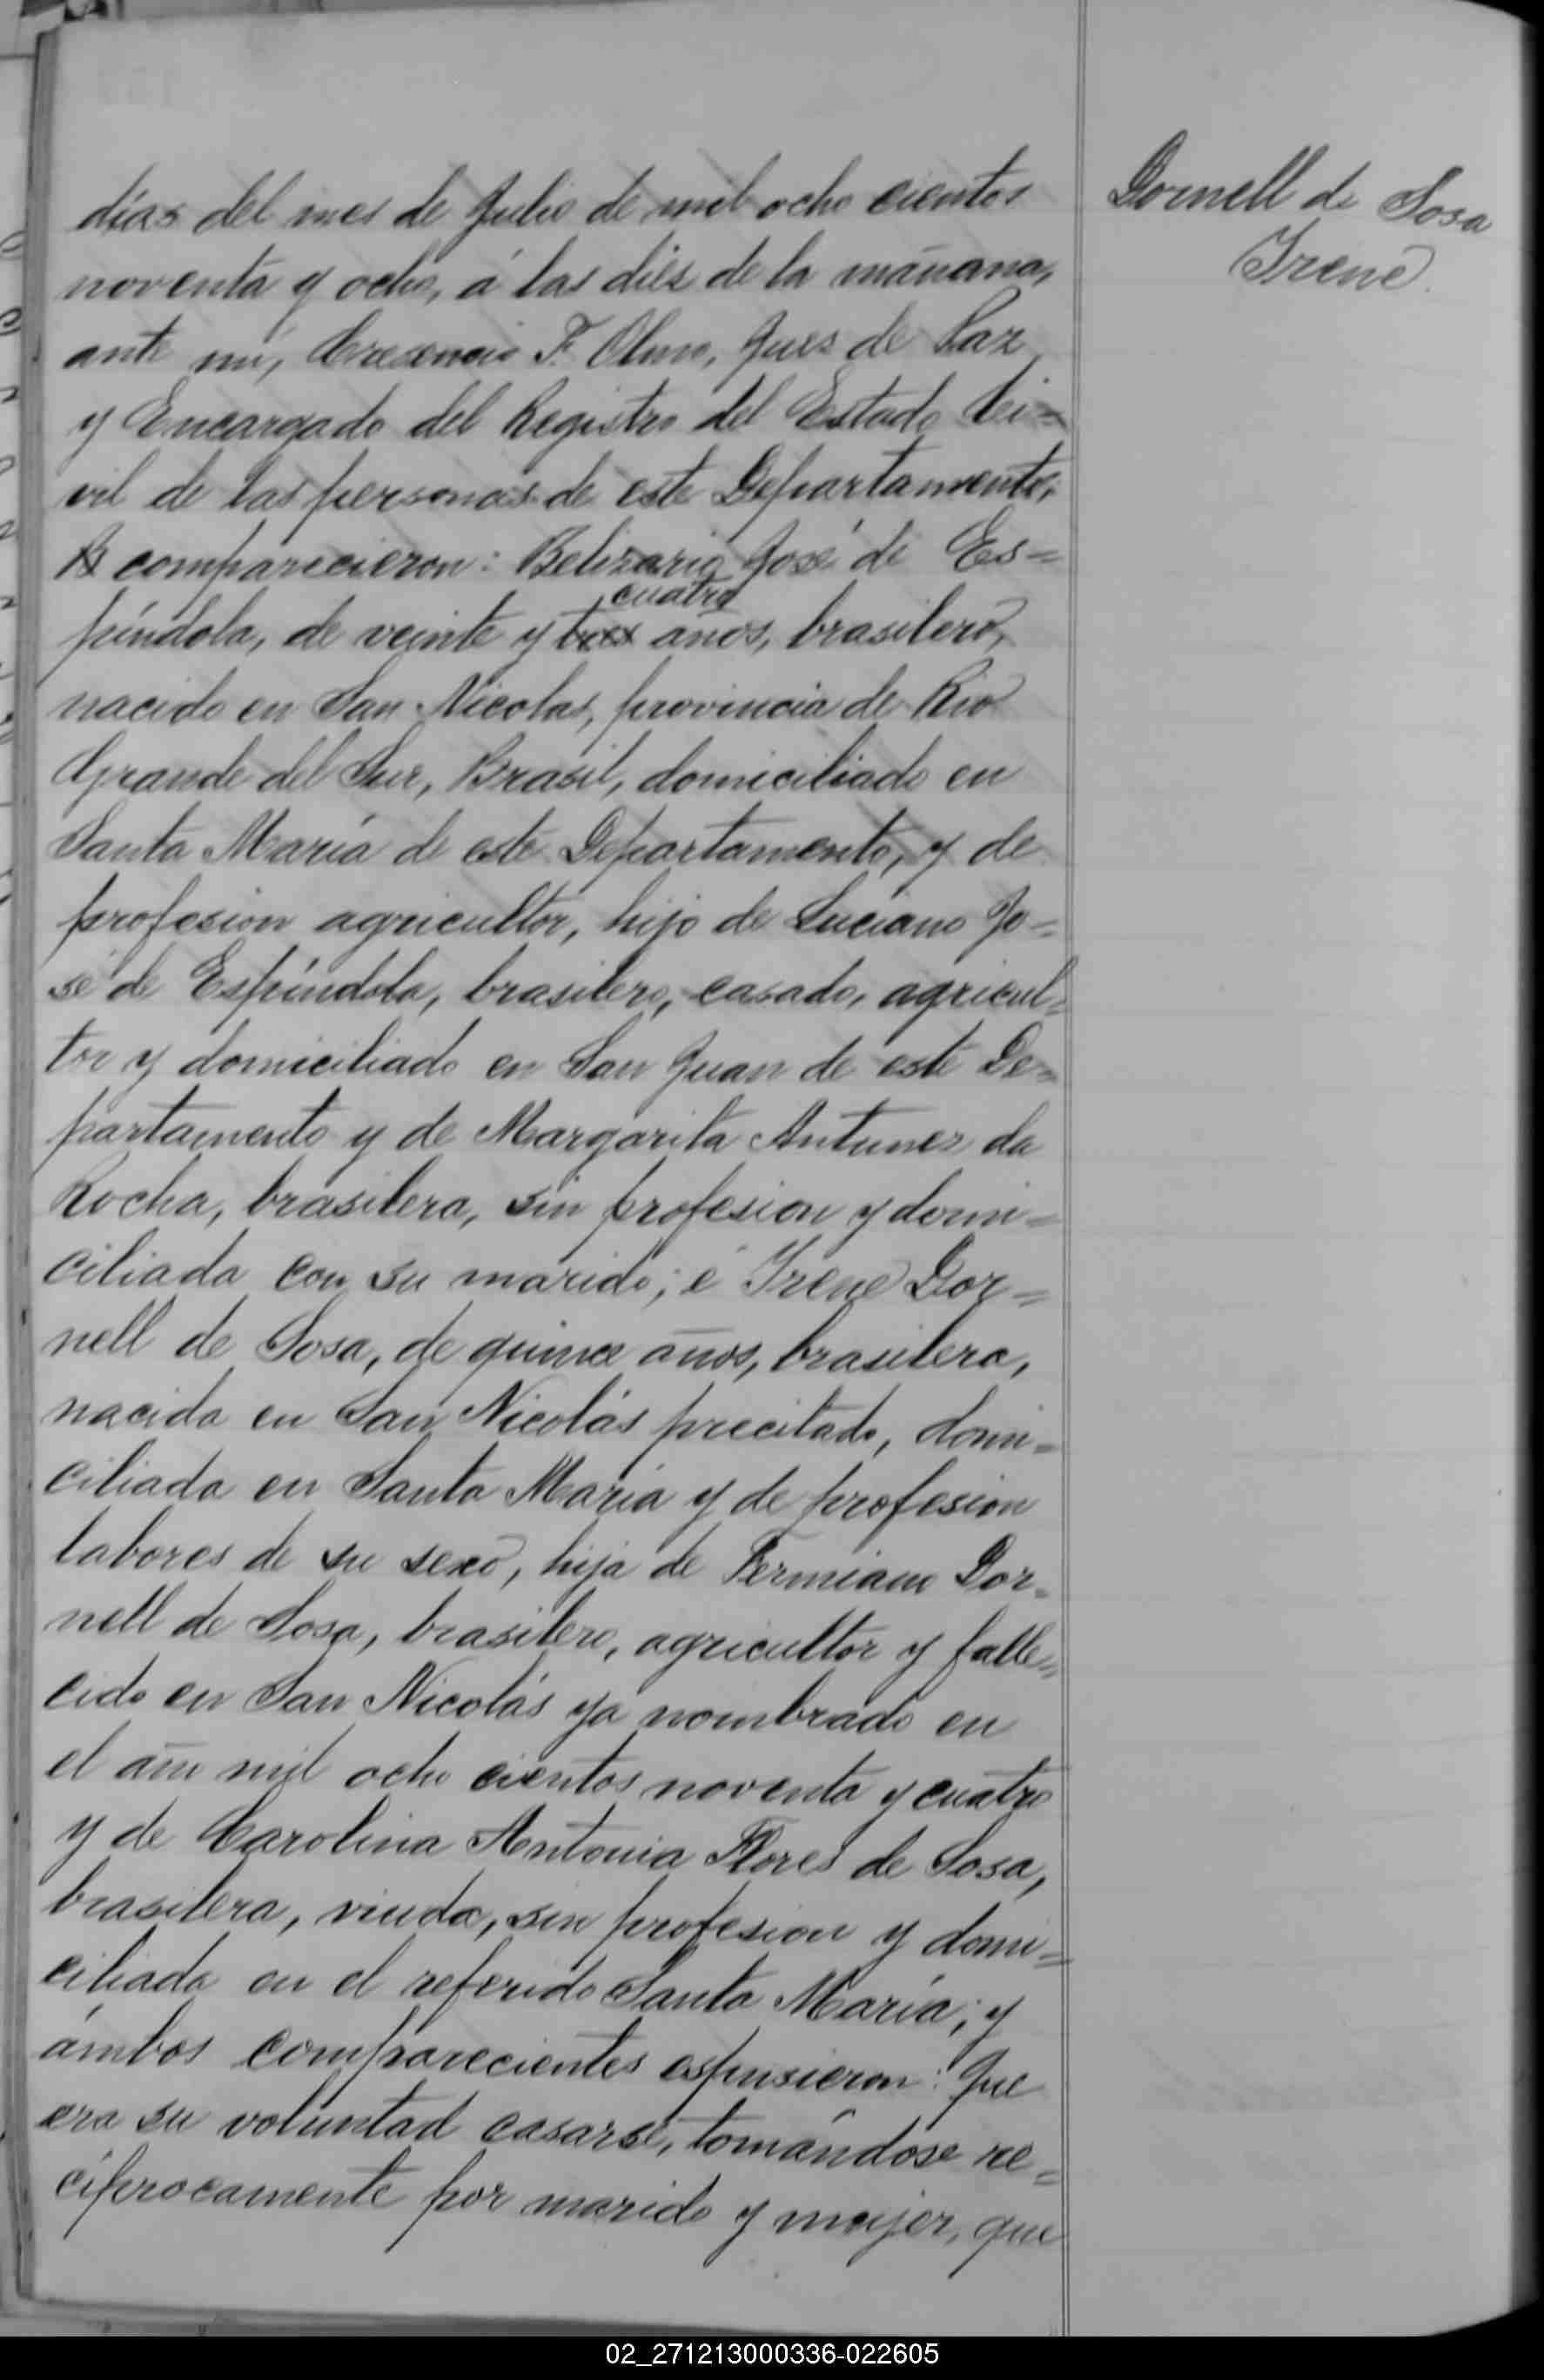 días del mes de Julio de mil ocho cientos
noventa y ocho, á las diez de la mañana,
ante mí, F. Olmo, Juez de Paz
y Encargado del Registro del Estado Ci=
vil de las personas de este Departamento,
comparecieron: Belizario José de Es=
cuatro
píndola, de veinte y tres años, brasilero,
nacido en San Nicolas, provincia de Rio
Grande del Sur, Brasil, domiciliado en
Santa María de este Departamento, y de
profesion agricultor, hijo de Luciano Jo=
sé de Espíndola, brasilero, casado, agricul=
tor y domiciliado en San Juan de este De=
partamento y de Margarita Antunez da
Rocha, brasilera, sin profesion y domi=
ciliada con su marido; é Irene Dor=
nell de Sosa, de quince años, brasilera,
nacida en San Nicolás precitado, domi=
ciliada en Santa María y de profesion
labores de su sexo, hija de Fermiano Dor=
nell de Sosa, brasilero, agricultor y falle=
cido en San Nicolás ya nombrado en
el año mil ocho cientos noventa y cuatro
y de Carolina Antonia Flores de Sosa,
brasilera, viuda, sin profesion y domi=
ciliada en el referido Santa María; y
ámbos comparecientes espusieron: Que
era su voluntad casarse, tomándose re=
cíprocamente por marido y mujer, que
Dornell de Sosa
Irene.
02_271213000336-022605